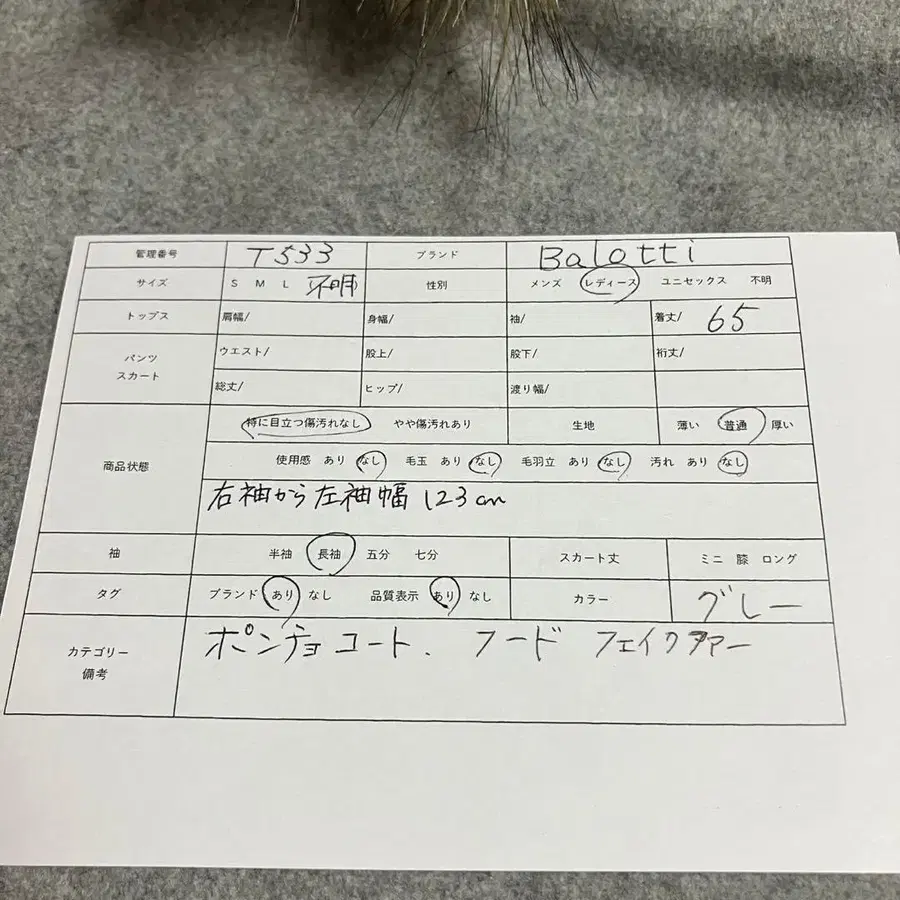 管理番号 T533 ブランド Balotti
サイズ S M L (不明) 性別 メンズ レディース ユニセックス 不明
トップス 肩幅/ 身幅/ 袖/ 着丈/ 65
パンツ スカート ウエスト/ 股上/ 股下/ 裄丈/
総丈/ ヒップ/ 渡り幅/
商品状態 特に目立つ傷汚れなし やや傷汚れあり 生地 薄い 普通 厚い
使用感 あり なし 毛玉 あり なし 毛羽立 あり なし 汚れ あり なし
右袖から左袖幅 123cm
袖 半袖 長袖 五分 七分 スカート丈 ミニ 膝 ロング
タグ ブランド あり なし 品質表示 あり なし カラー グレー
カテゴリー 備考 ポンチョコート. フード フェイクファー